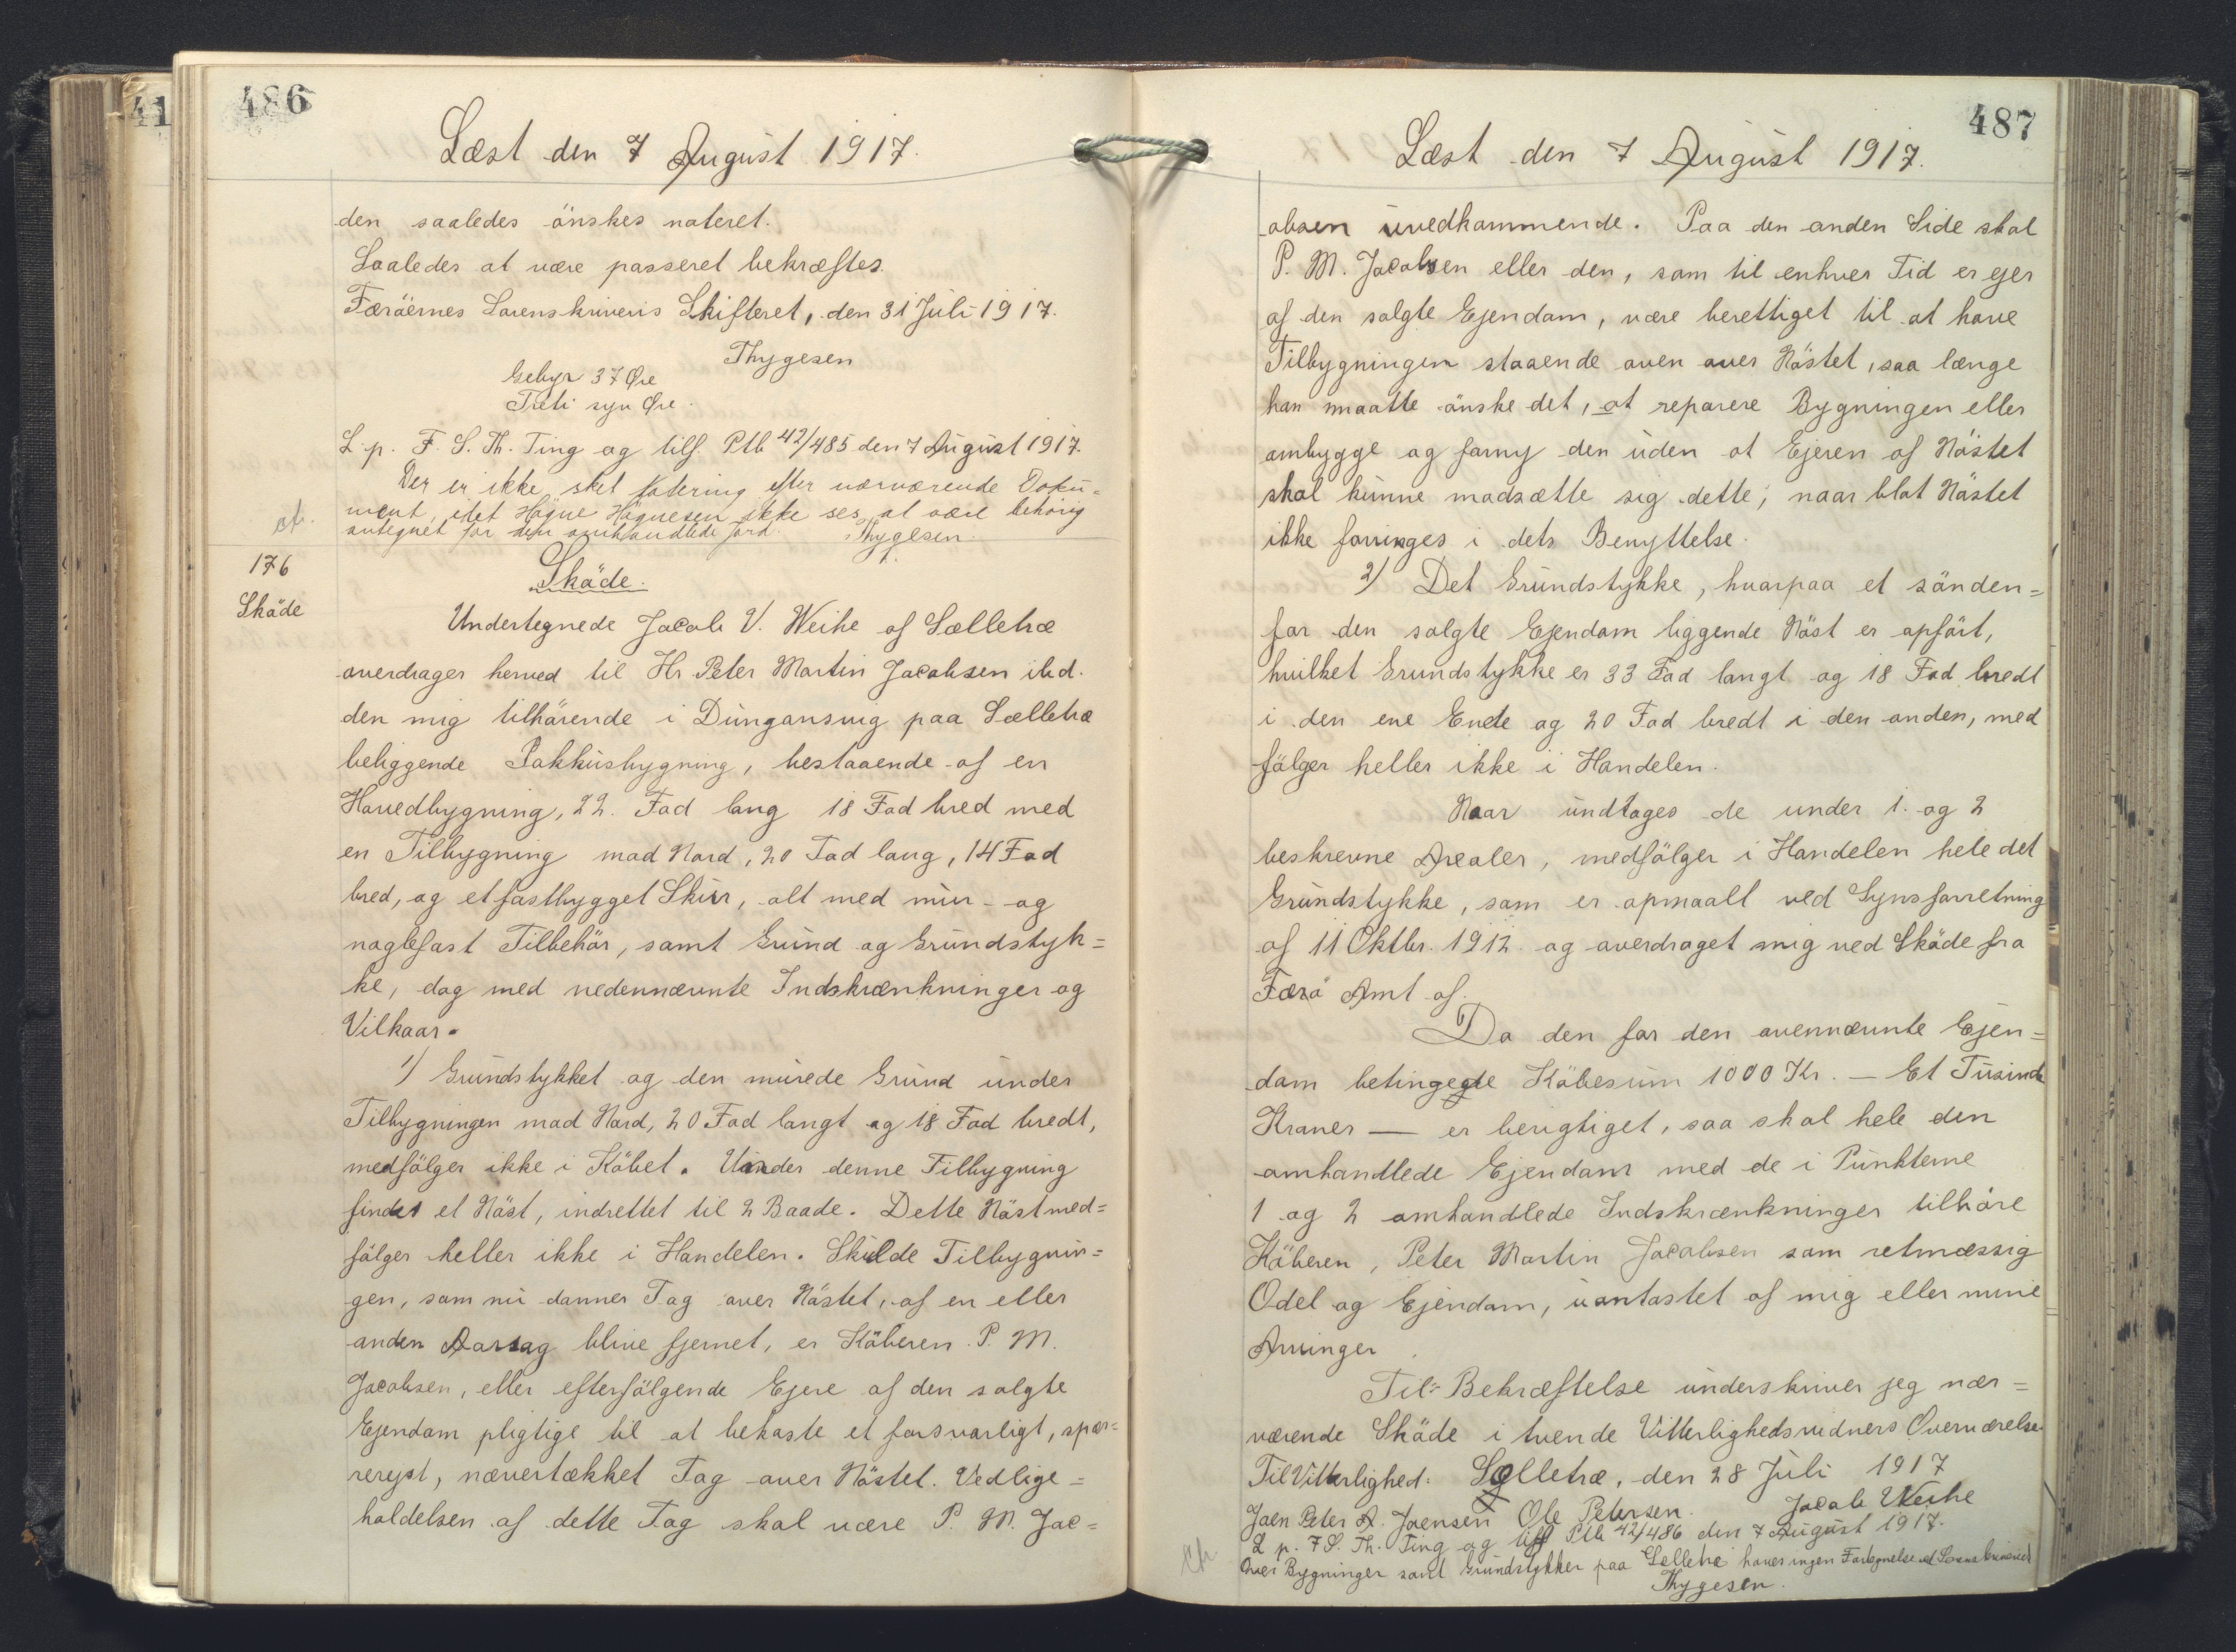 41
486
Læst den 7 August 1917.
den saaledes önskes noteret.
Saaledes at være passeret bekræftes.
Færöernes Sorenskriveris Skifteret, den 31 Juli 1917.
Thygesen
Gebyr 37 Øre
Treti syv Øre.
L. p. F. S. Th. Ting og tilf. Ptb 42/485 den 7 August 1917.
Der er ikke sket Notering efter nærværende Doku=
ment, idet Högne Högnesen ikke ses at være behörig
antegnet for den omhandlede Jord. Thygesen.
176
Sköde
Sköde.
Undertegnede Jacob V. Weihe af Selletræ
overdrager herved til Hr Peter Martin Jacobsen ibd.
den mig tilhörende i Dungansvig paa Selletræ
beliggende Pakhusbygning, bestaaende af en
Hovedbygning, 22. Fod lang 18 Fod bred med
en Tilbygning mod Nord, 20 Fod lang, 14 Fod
bred, og et fastbygget Skur, alt med mur- og
naglefast Tilbehör, samt Grund og Grundstyk=
ke, dog med nedennævnte Indskrænkninger og
Vilkaar.
1) Grundstykket og den murede Grund under
Tilbygningen mod Nord, 20 Fod langt og 18 Fod bredt,
medfölger ikke i Köbet. Under denne Tilbygning
findes et Nöst, indrettet til 2 Baade. Dette Nöst med=
fölger heller ikke i Handelen. Skulde Tilbygnin=
gen, som nu danner Tag over Nöstet, af en eller
anden Aarsag blive fjernet, er Köberen P. M.
Jacobsen, eller efterfölgende Ejere af den solgte
Ejendom pligtige til at bekoste et forsvarligt, spær=
rerejst, nævertækket Tag over Nöstet. Vedlige=
holdelsen af dette Tag skal være P. M. Jac=
487
Læst den 7 August 1917.
obsen uvedkommende. Paa den anden Side skal
P. M. Jacobsen eller den, som til enhver Tid er ejer
af den solgte Ejendom, være berettiget til at have
Tilbygningen staaende oven over Nöstet, saa længe
han maatte önske det, at reparere Bygningen eller
ombygge og forny den uden at Ejeren af Nöstet
skal kunne modsætte sig dette, naar blot Nöstet
ikke forringes i dets Benyttelse.
2) Det Grundstykke, hvorpaa et sönden=
for den solgte Ejendom liggende Nöst er opfört,
hvilket Grundstykke er 33 Fod langt og 18 Fod bredt
i den ene Ende og 20 Fod bredt i den anden, med
fölger heller ikke i Handelen.
Naar undtages de under 1. og 2
beskrevne Arealer, medfölger i Handelen hele det
Grundstykke, som er opmaalt ved Synsforretning
af 11 Oktbr. 1912. og overdraget mig ved Sköde fra
Færö Amt af.
Da den for den ovennævnte Ejen=
dom betingede Köbesum 1000 Kr. — Et Tusinde
Kroner — er berigtiget, saa skal hele den
omhandlede Ejendom med de i Punkterne
1 og 2 omhandlede Indskrænkninger tilhöre
Köberen, Peter Martin Jacobsen som retmæssig
Odel og Ejendom, uantastet af mig eller mine
Arvinger.
Til Bekræftelse underskriver jeg nær=
værende Sköde i tvende Vitterlighedsvidners Overværelse
Til Vitterlighed: Selletræ, den 28 Juli 1917
Joen Peter A. Joensen Ole Petersen. Jacob Weihe
L. p. F S. Th. Ting og tilf Ptb 42/486 den 7 August 1917.
Over Bygninger samt Grundstykker paa Selletræ haves ingen Fortegnelse ved Sorenskriveriet
Thygesen.